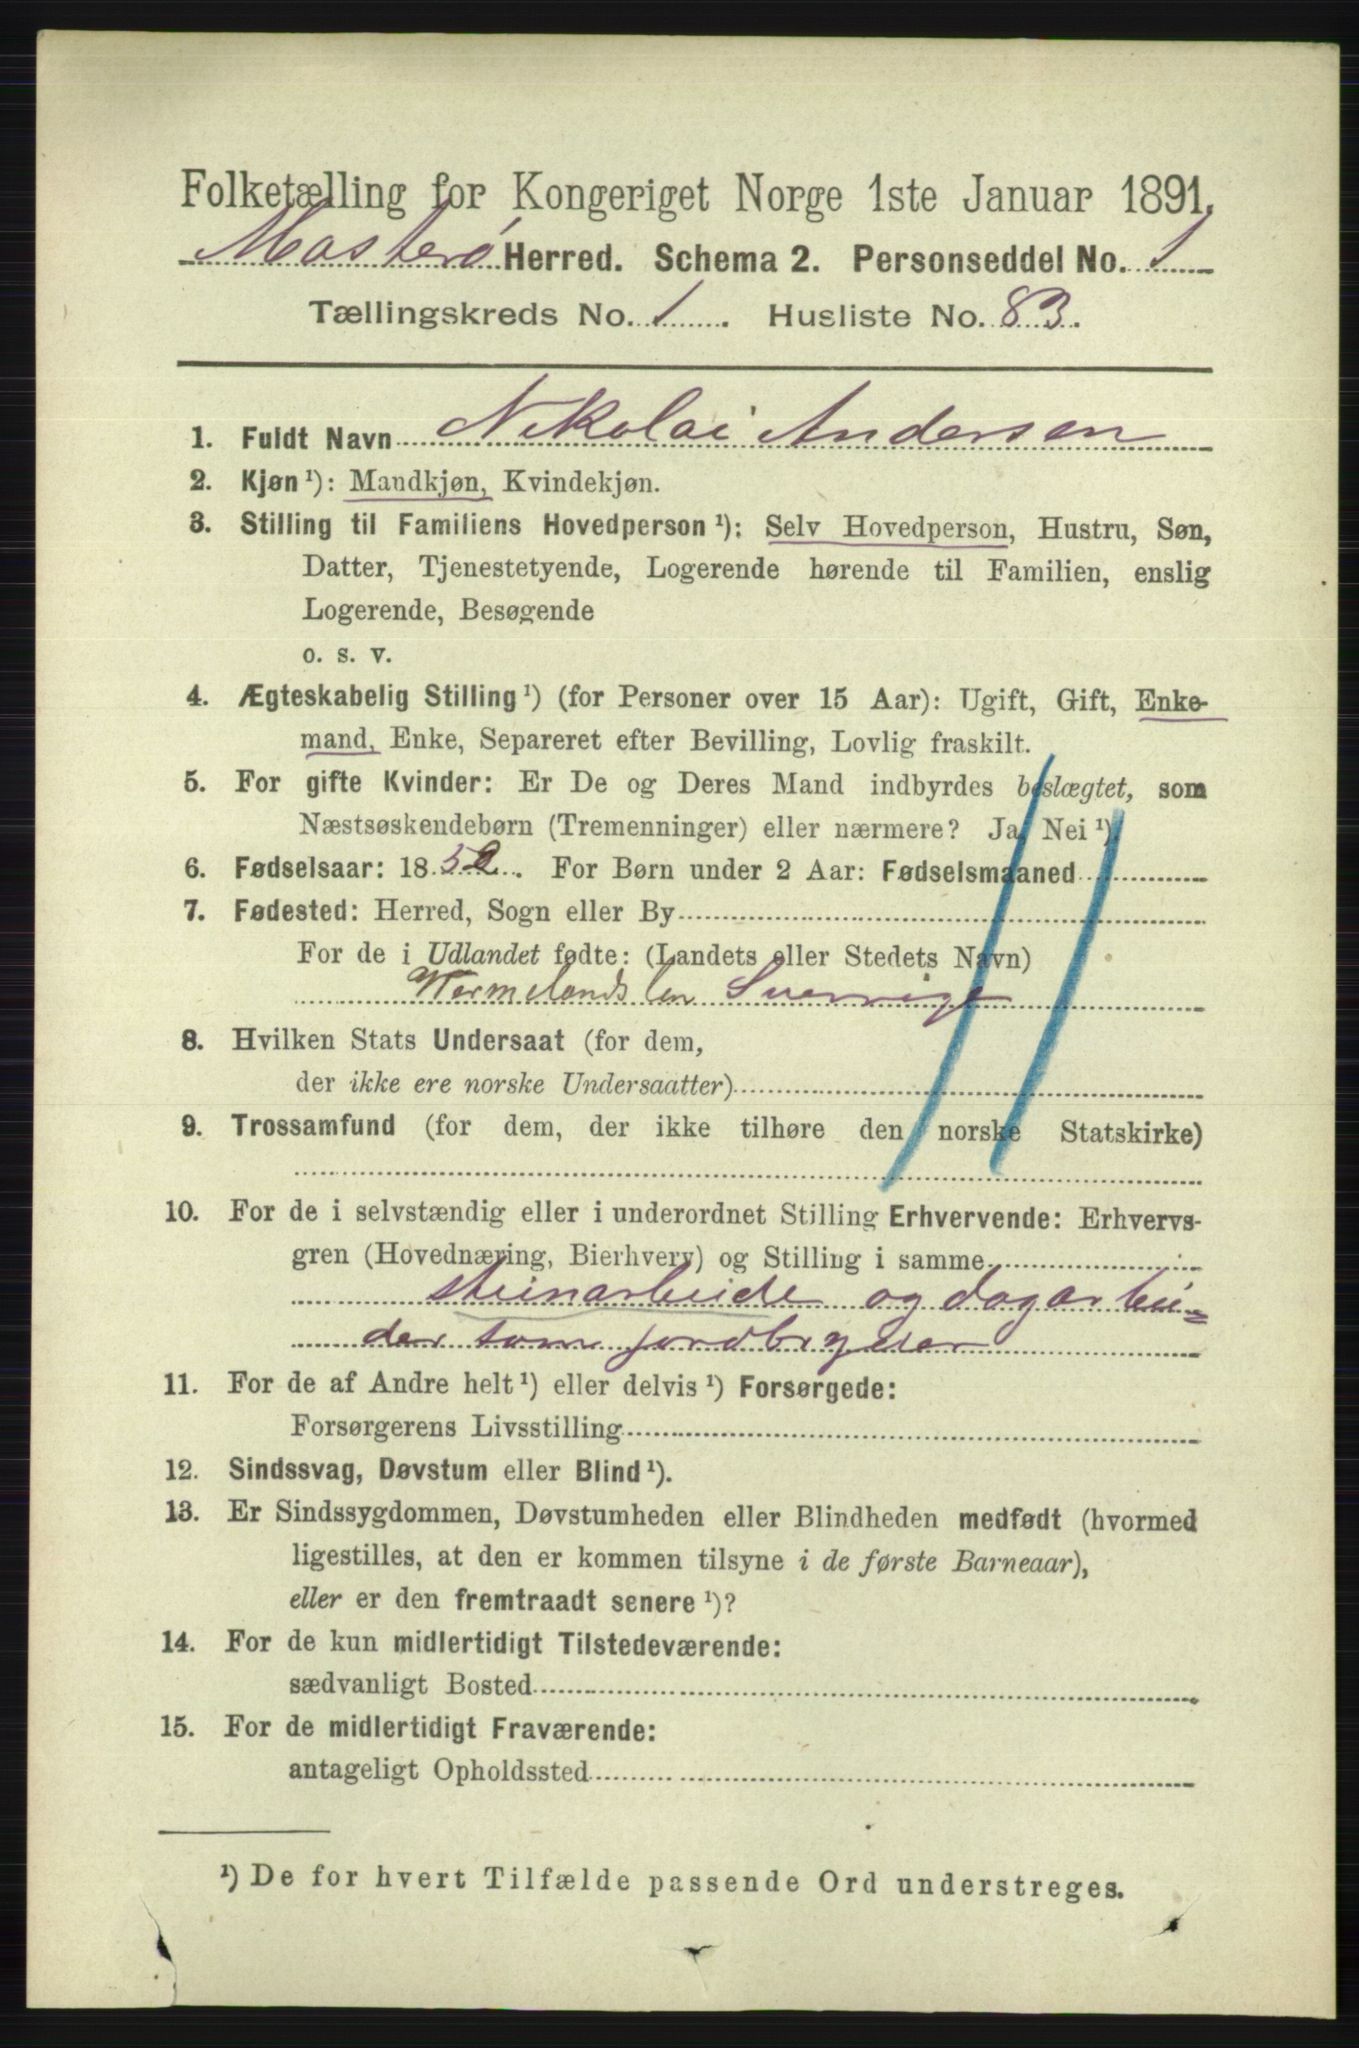 Folketælling for Kongeriget Norge 1ste Januar 1891.
Mosterø Herred. Schema 2. Personseddel No. 1
Tællingskreds No. 1. Husliste No. 83.
1. Fuldt Navn Nikolai Andersen
2. Kjøn ¹): Mandkjøn, Kvindekjøn.
3. Stilling til Familiens Hovedperson ¹): Selv Hovedperson, Hustru, Søn,
Datter, Tjenestetyende, Logerende hørende til Familien, enslig
Logerende, Besøgende
o. s. v.
4. Ægteskabelig Stilling ¹) (for Personer over 15 Aar): Ugift, Gift, Enke-
mand, Enke, Separeret efter Bevilling, Lovlig fraskilt.
5. For gifte Kvinder: Er De og Deres Mand indbyrdes beslægtet, som
Næstsøskendebørn (Tremenninger) eller nærmere? Ja, Nei ¹).
6. Fødselsaar: 1852. For Børn under 2 Aar: Fødselsmaaned
7. Fødested: Herred, Sogn eller By
For de i Udlandet fødte: (Landets eller Stedets Navn)
Wermelands len Sverrige
8. Hvilken Stats Undersaat (for dem,
der ikke ere norske Undersaatter)
9. Trossamfund (for dem, der ikke tilhøre den norske Statskirke)
10. For de i selvstændig eller i underordnet Stilling Erhvervende: Erhvervs-
gren (Hovednæring, Bierhverv) og Stilling i samme
steinarbeide og dagarbei=
der som jordbryder
11. For de af Andre helt ¹) eller delvis ¹) Forsørgede:
Forsørgerens Livsstilling
12. Sindssvag, Døvstum eller Blind ¹).
13. Er Sindssygdommen, Døvstumheden eller Blindheden medfødt (hvormed
ligestilles, at den er kommen tilsyne i de første Barneaar),
eller er den fremtraadt senere ¹)?
14. For de kun midlertidigt Tilstedeværende:
sædvanligt Bosted
15. For de midlertidigt Fraværende:
antageligt Opholdssted
¹) De for hvert Tilfælde passende Ord understreges.